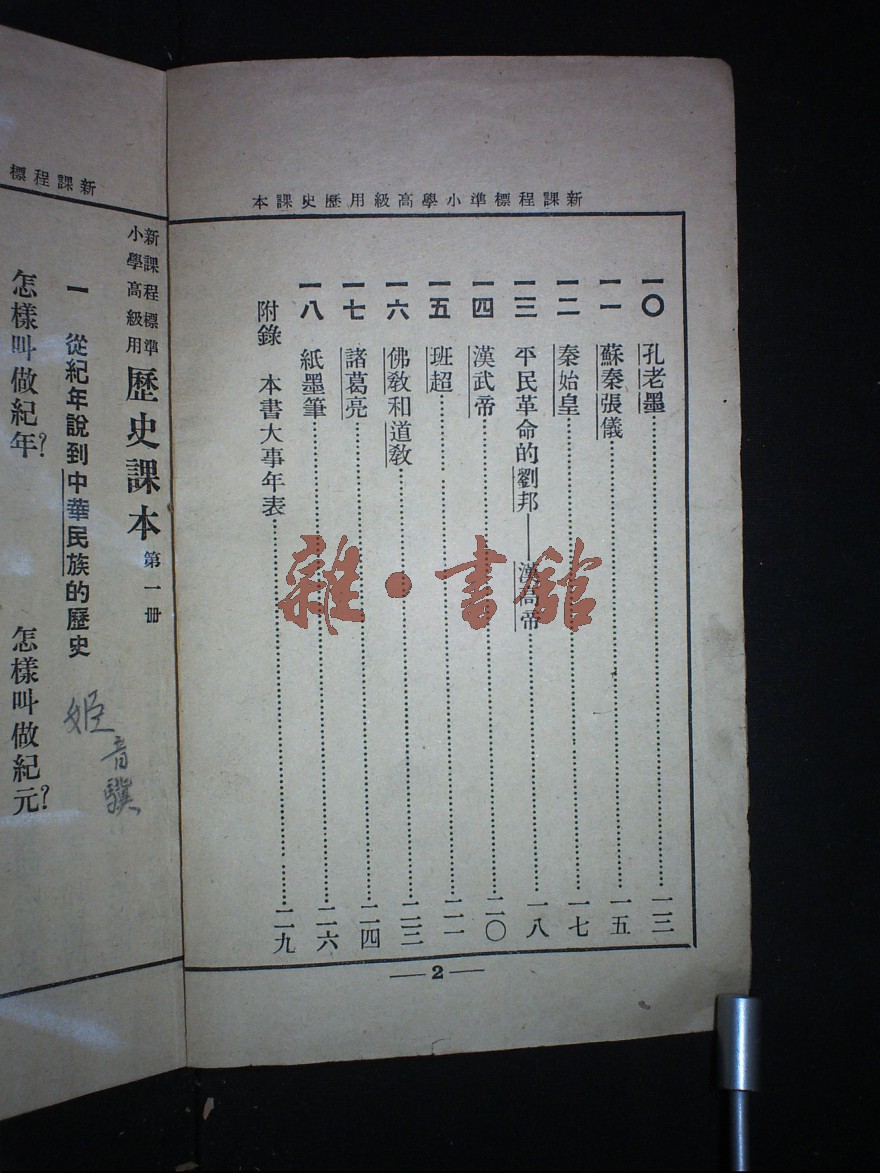 新課程標準小學高級用歷史課本
一〇 孔老墨……一三
一一 蘇秦張儀……一五
一二 秦始皇……一七
一三 平民革命的劉邦——漢高帝……一八
一四 漢武帝……二〇
一五 班超……二一
一六 佛教和道教……二三
一七 諸葛亮……二四
一八 紙墨筆……二六
附錄 本書大事年表……二九
—2—
雜·書館
新課程標
新課程標準
小學高級用
歷史課本 第一冊
一 從紀年說到中華民族的歷史
姬音驥
怎樣叫做紀年? 怎樣叫做紀元?